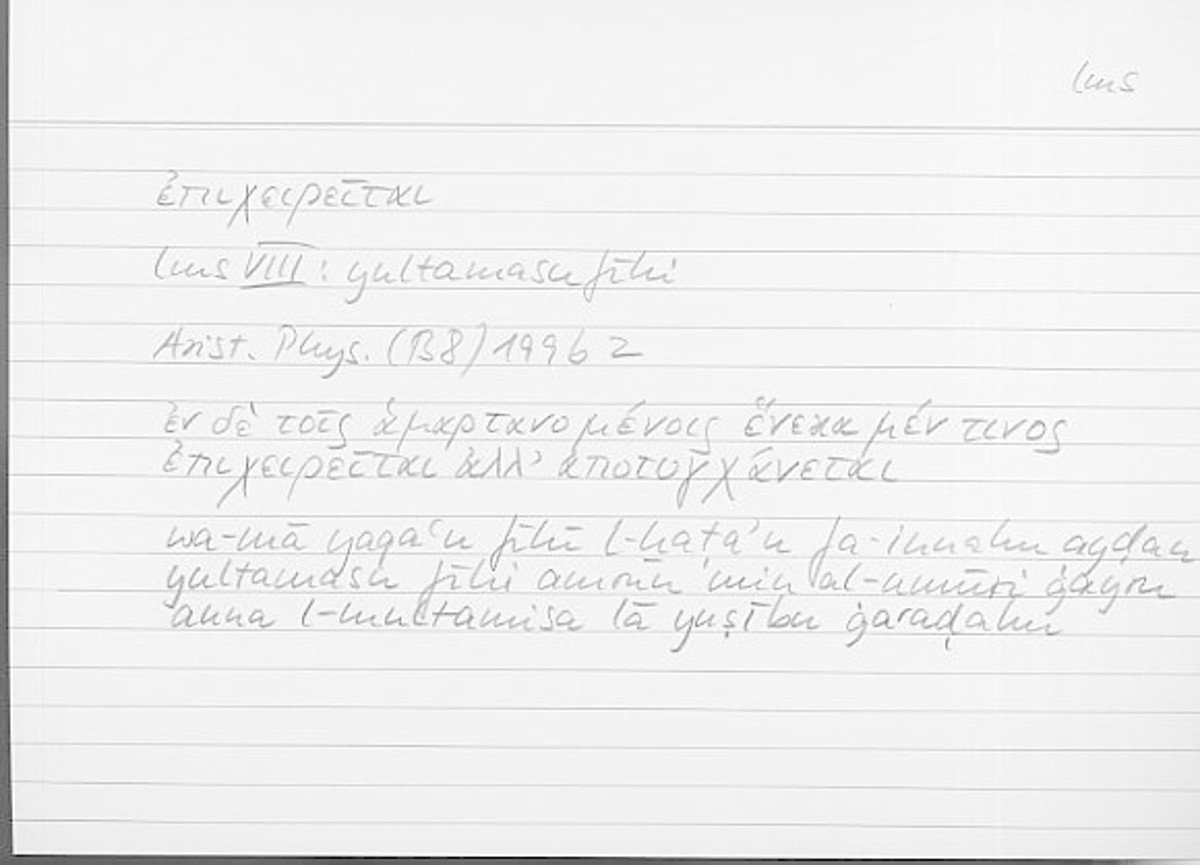 lms
ἐπιχειρεῖται
lms VIII : yultamasu fīhi
Arist. Phys. (B8) 199b 2
ἐν δὲ τοῖς ἁμαρτανομένοις ἕνεκα μέν τινος
ἐπιχειρεῖται ἀλλ’ ἀποτυγχάνεται
wa-mā yaqaʿu fīhi l-ḫaṭaʾu fa-innahu ayḍan
yultamasu fīhi amrun min al-umūri ġayra
anna l-multamisa lā yuṣību ġaraḍahu